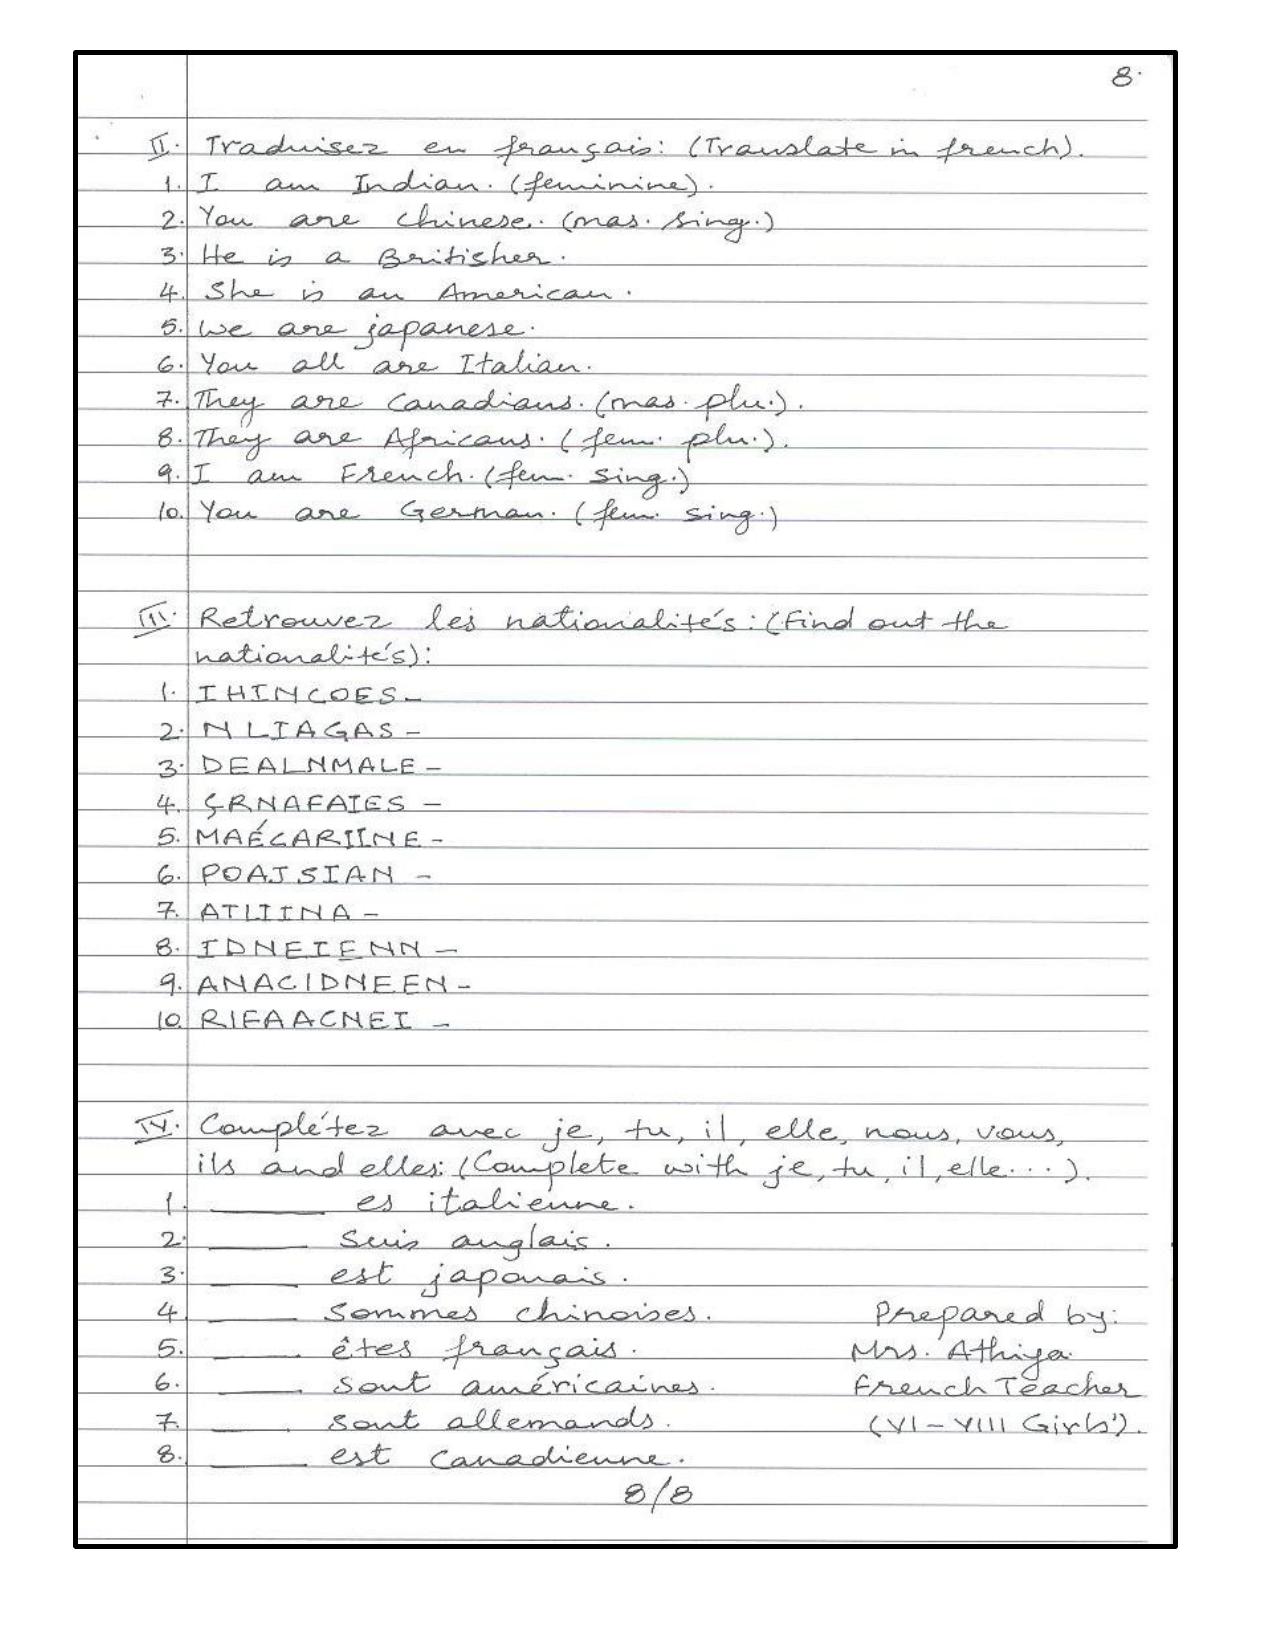 8.
II. Traduisez en français: (Translate in french).
1. I am Indian. (feminine).
2. You are chinese. (mas. sing.)
3. He is a Britisher.
4. She is an American.
5. We are japanese.
6. You all are Italian.
7. They are Canadians. (mas. plu.).
8. They are Africans. (fem. plu.).
9. I am French. (fem. sing.)
10. You are German. (fem. sing.)
III. Retrouvez les nationalités: (Find out the
nationalités):
1. IHINCOES -
2. NLIAGAS -
3. DEALNMALE -
4. ÇRNAFAIES -
5. MAÉCARIINE -
6. POAJSIAN -
7. ATLIINA -
8. IDNEIENN -
9. ANACIDNEEN -
10. RIFAACNEI -
IV. Complétez avec je, tu, il, elle, nous, vous,
ils and elles: (Complete with je, tu, il, elle...).
1. ______ es italienne.
2. ______ suis anglais.
3. ______ est japonais.
4. ______ sommes chinoises. Prepared by:
5. ______ êtes français. Mrs. Athiya
6. ______ sont américaines. French Teacher
7. ______ sont allemands. (VI-VIII Girls').
8. ______ est Canadienne.
8/8